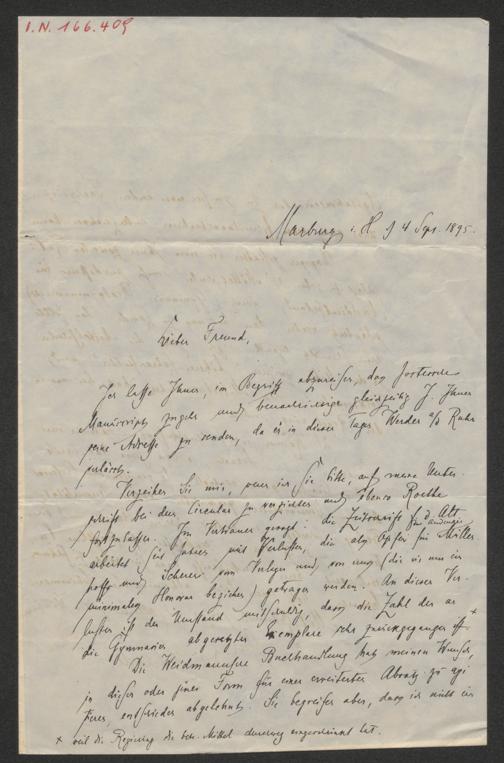 I.N. 166.409
Marburg i. H. d 4 Sept. 1895.
Lieber Freund,
Ich lasse Ihnen, im Begriff abzureisen, das
Manuscript zugehen und gleichzeitig J.
seine Adresse zu senden, da er in diesen Tagen Werden a/d Ruhr
verlässt.
Verzeihen Sie mir, wenn ich Sie bitte, auf meine Unter-
schrift bei dem Circular zu verzichten und ebenso Roethe
fortzulassen. Im Vertrauen gesagt: die Zeitschrift für d Alt
arbeitet seit Jahren mit Verlusten, die als Opfer für Müllen-
hoff und Scherer vom Verleger und von uns (die wir nur ein
minimales Honorar beziehen) getragen werden. An diesen Ver-
lusten ist der Umstand mitschuldig, dass die Zahl der an
die Gymnasien abgesetzten Exemplare sehr zurückgegangen ist. +
Die Weidmannsche Buchhandlung hat meinen Wunsch,
in dieser oder jener Form für einen erweiterten Absatz zu agi-
tieren, entschieden abgelehnt. Sie begreifen aber, dass ich nicht ein
+ weil die Regierung die betr. Mittel eingeschränkt hat.